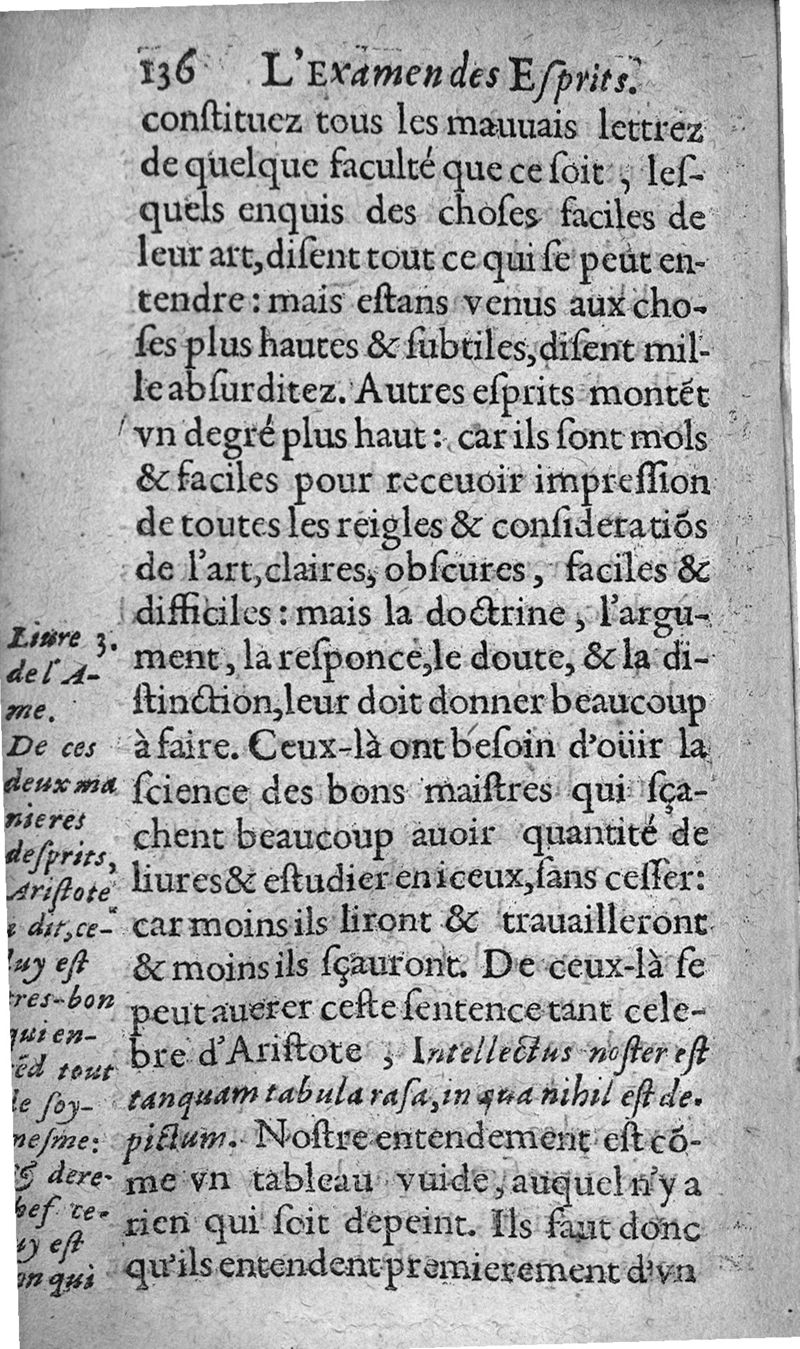 136 L'Examen des Esprits.
conſtituez tous les mauuais lettrez
de quelque faculté que ce ſoit, leſ-
quels enquis des choſes faciles de
leur art, diſent tout ce qui ſe peut en-
tendre: mais eſtans venus aux cho-
ſes plus hautes & ſubtiles, diſent mil-
le abſurditez. Autres eſprits montẽt
vn degré plus haut: car ils ſont mols
& faciles pour receuoir impreſſion
de toutes les reigles & conſideratiõs
de l'art, claires, obſcures, faciles &
difficiles: mais la doctrine, l'argu-
ment, la reſponce, le doute, & la di-
ſtinction, leur doit donner beaucoup
à faire. Ceux-là ont beſoin d'oüir la
ſcience des bons maiſtres qui ſça-
chent beaucoup auoir quantité de
liures & eſtudier en iceux, ſans ceſſer:
car moins ils liront & trauailleront
& moins ils ſçauront. De ceux-là ſe
peut auerer ceſte ſentence tant cele-
bre d'Ariſtote, Intellectus noſter eſt
tanquam tabula raſa, in qua nihil eſt de-
pictum. Noſtre entendement eſt cõ-
me vn tableau vuide, auquel n'y a
rien qui ſoit depeint. Ils faut donc
qu'ils entendent premierement d'vn
Liure 3.
de l'A-
me.
De ces
deux ma
nieres
deſprits,
Ariſtote
dit, ce-
luy eſt
tres-bon
qui en-
tẽd tout
de ſoy-
meſme:
& dere-
chef ce-
luy eſt
bon qui